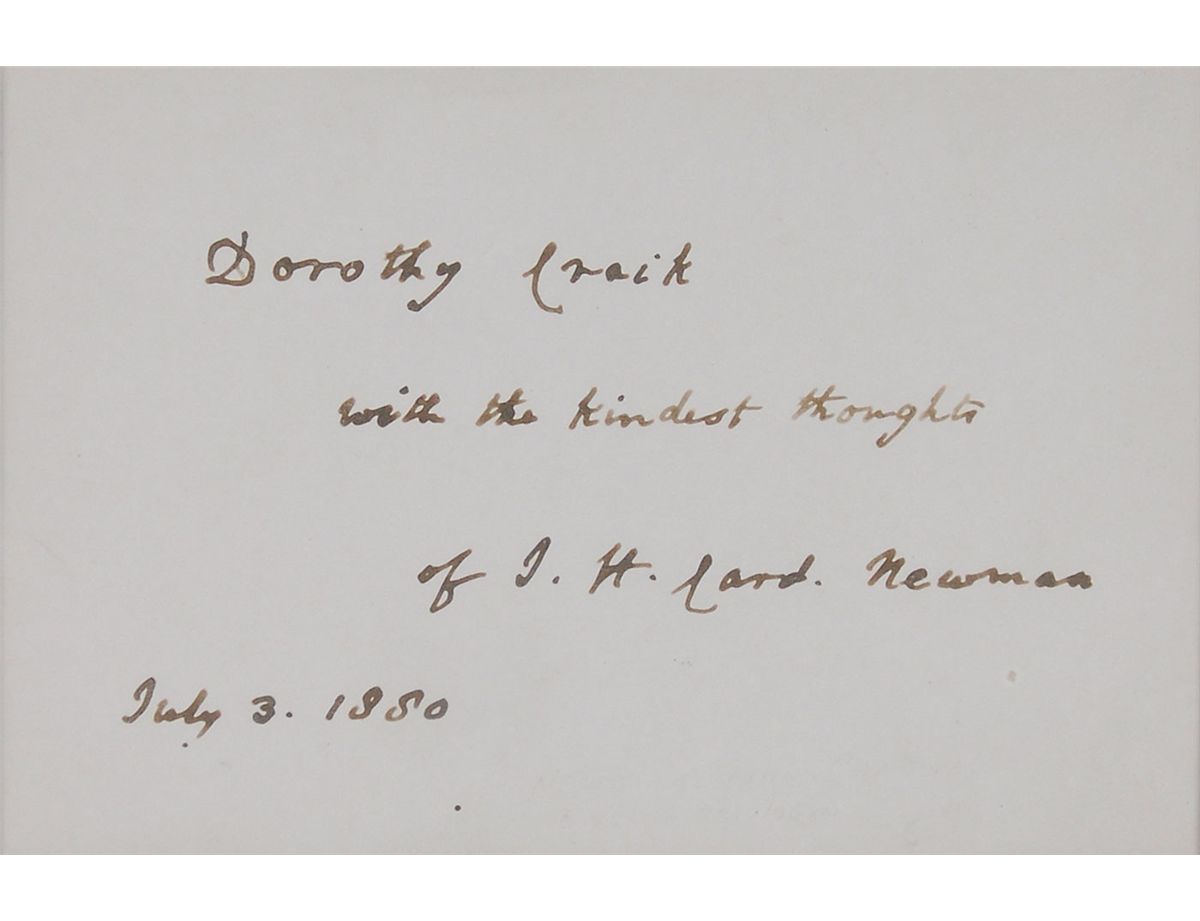 Dorothy Craik
with the kindest thoughts
of J. H. Card. Newman
July 3. 1880